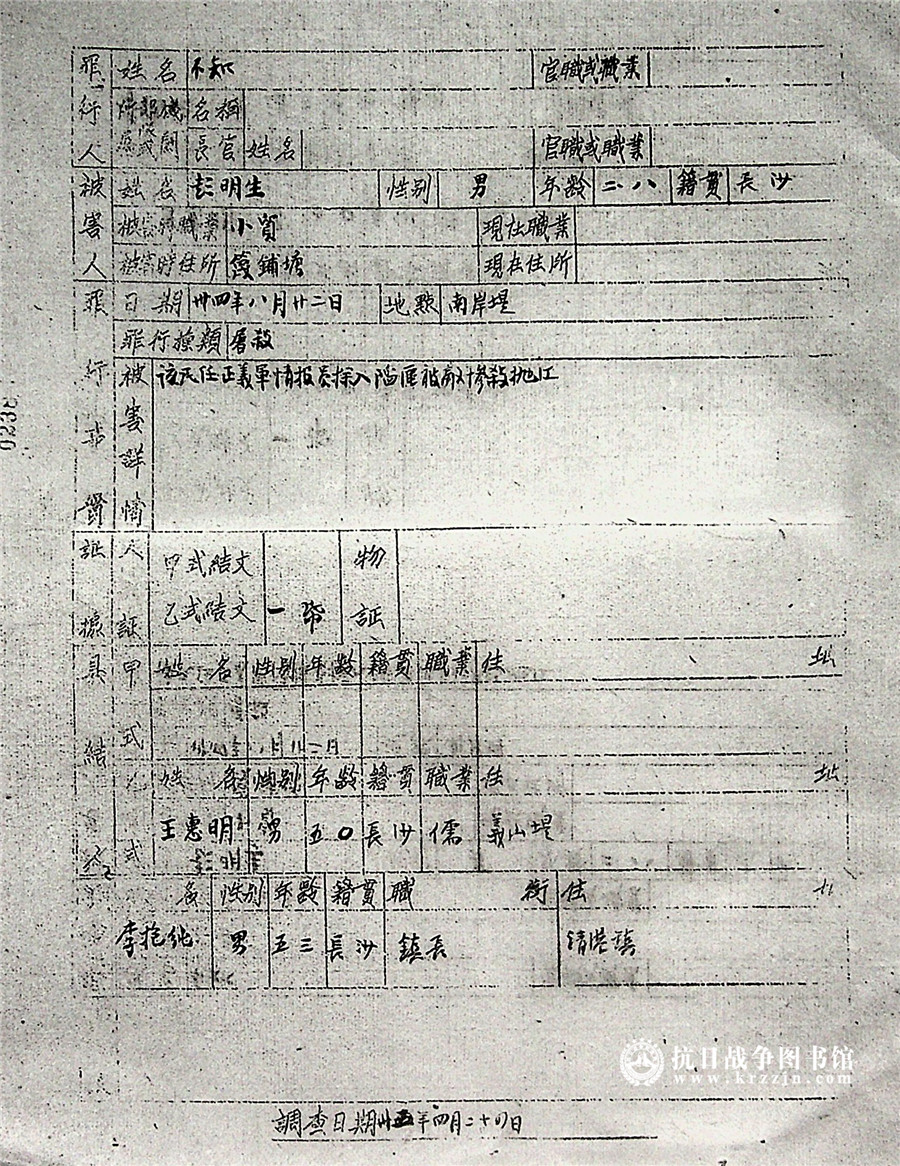 罪行人 姓名 不知 官職或職業
所部機關 名稱
長官姓名 官職或職業
被害人 姓名 彭明生 性别 男 年齡 二八 籍貫 長沙
被害時職業 小貿 現在職業
被害時住所 鋪塘 現在住所
罪行事實 日期 卅四年八月廿二日 地點 南岸堤
罪行種類 屠殺
被害詳情 該民任正義軍情报 探入陷 被敵慘殺抛江
証據 人証 甲式結文 物証
乙式結文 一帋
具結 甲式 姓名 性别 年齡 籍貫 職業 住址
乙式 姓名 性别 年齡 籍貫 職業 住址
王惠明 男 五〇 長沙 儒 義山堤
名 性别 年齡 籍貫 職銜 住址
李 純 男 五三 長沙 鎮長 靖港鎮
0238
調查日期卅五年四月二十四日
抗日战争图书馆
www.krzzjn.com